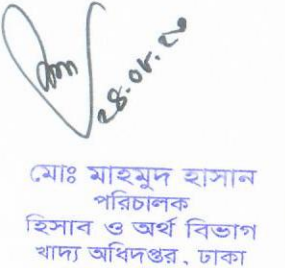 ২৪.০৮.২০
মোঃ মাহমুদ হাসান
পরিচালক
হিসাব ও অর্থ বিভাগ
খাদ্য অধিদপ্তর, ঢাকা